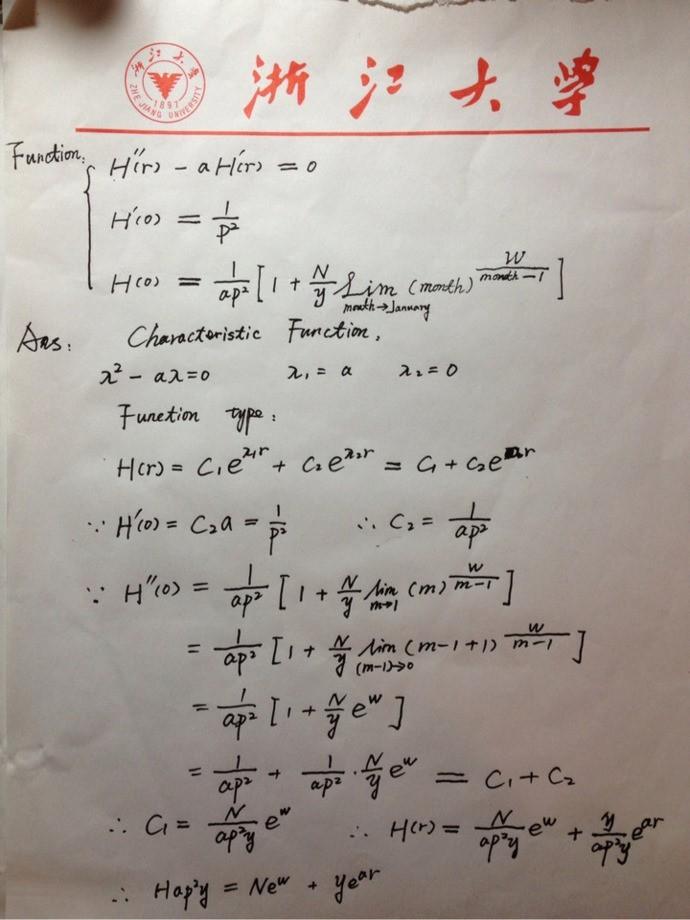 浙江大学
ZHE JIANG UNIVERSITY
1897
浙江大学
Function:
H''(r) - aH'(r) = 0
H'(0) = 1/p²
H(0) = 1/ap² [1 + N/y Lim month→January (month)^(W/month-1)]
Ans: Characteristic Function,
λ² - aλ=0 λ₁ = a λ₂ = 0
Function type:
H(r) = C₁e^(λ₁r) + C₂e^(λ₂r) = C₁ + C₂e^(ar)
∵ H'(0) = C₂a = 1/p² ∴ C₂ = 1/ap²
∵ H''(0) = 1/ap² [1 + N/y lim m→1 (m)^(w/m-1)]
= 1/ap² [1 + N/y lim (m-1)→0 (m-1+1)^(w/m-1)]
= 1/ap² [1 + N/y e^w]
= 1/ap² + 1/ap² · N/y e^w = C₁ + C₂
∴ C₁ = N/ap²y e^w ∴ H(r) = N/ap²y e^w + y/ap²y e^(ar)
∴ Hap²y = Ne^w + ye^(ar)